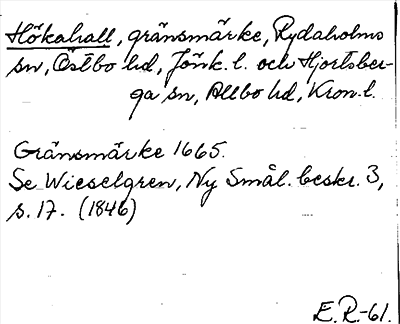 Hökahall, gränsmärke, Rydaholms
sn, Östbo hd, Jönk. l. och Hjortsber-
ga sn, Allbo hd, Kron. l.
Gränsmärke 1665.
Se Wieselgren, Ny Smål. beskr. 3,
s. 17. (1846)
E. R.-61.